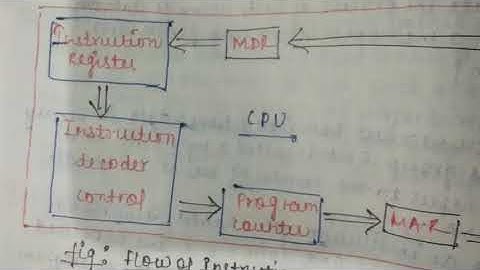 Instruction
Register
MDR
CPU
Instruction
decoder
control
Program
counter
M.A.R
fig: Flow of Instructi